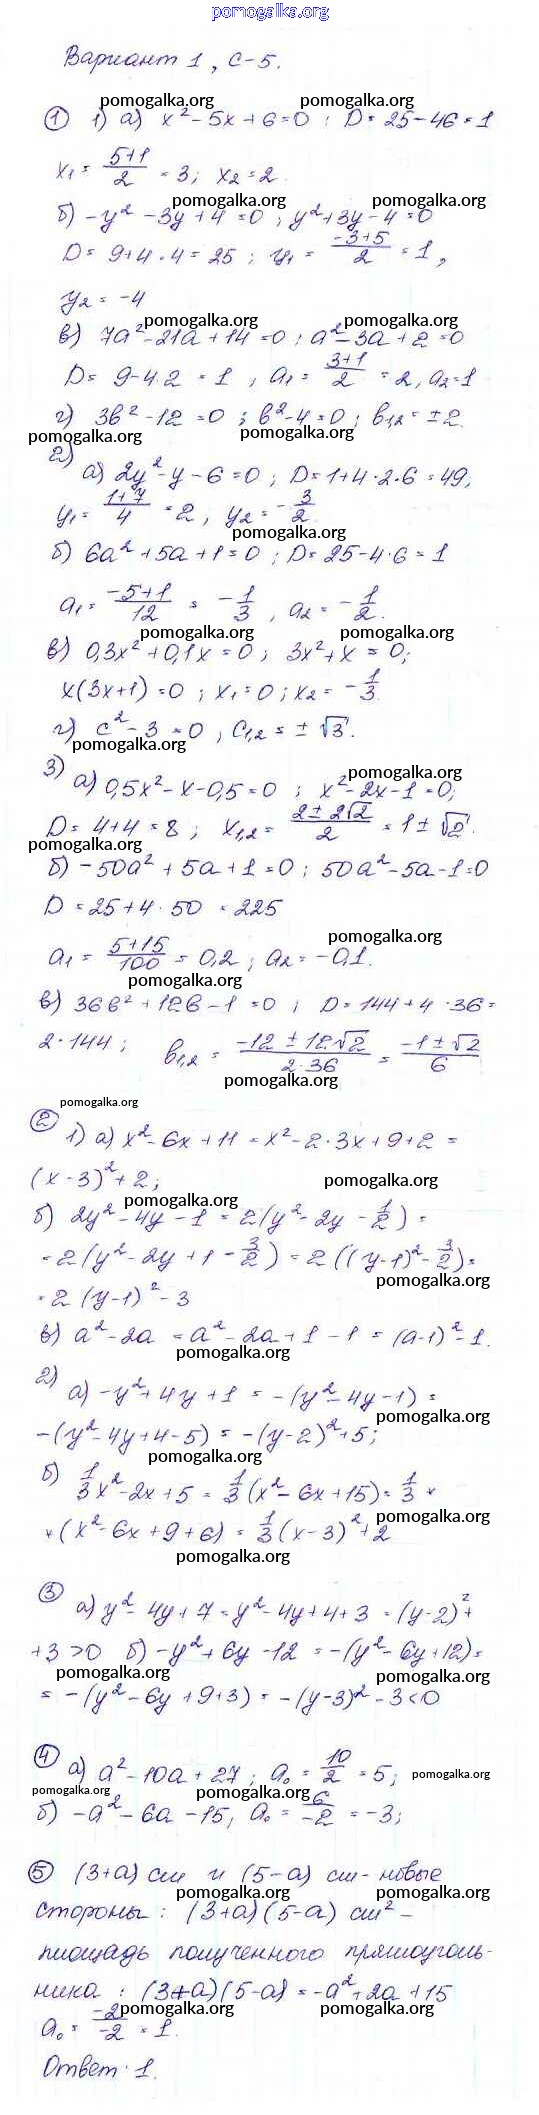 pomogalka.org
Вариант 1, С-5.
pomogalka.org pomogalka.org
① 1) а) x² - 5x + 6 = 0 ; D = 25 - 46 = 1
x₁ = (5+1)/2 = 3; x₂ = 2.
pomogalka.org pomogalka.org
б) -y² - 3y + 4 = 0 ; y² + 3y - 4 = 0
D = 9 + 4·4 = 25 ; y₁ = (-3+5)/2 = 1,
y₂ = -4
pomogalka.org pomogalka.org
в) 7a² - 21a + 14 = 0 ; a² - 3a + 2 = 0
D = 9 - 4·2 = 1 , a₁ = (3+1)/2 = 2, a₂ = 1
г) 3в² - 12 = 0 ; в² - 4 = 0; в₁,₂ = ±2.
pomogalka.org pomogalka.org
2)
а) 2y² - y - 6 = 0 ; D = 1 + 4·2·6 = 49,
y₁ = (1+7)/4 = 2 ; y₂ = -3/2.
pomogalka.org
б) 6a² + 5a + 1 = 0 ; D = 25 - 4·6 = 1
a₁ = (-5+1)/12 = -1/3 , a₂ = -1/2.
pomogalka.org pomogalka.org
в) 0,3x² + 0,1x = 0 ; 3x² + x = 0;
x(3x+1) = 0 ; x₁ = 0 ; x₂ = -1/3.
г) c² - 3 = 0 , c₁,₂ = ±√3.
pomogalka.org
3)
pomogalka.org
а) 0,5x² - x - 0,5 = 0 ; x² - 2x - 1 = 0;
D = 4 + 4 = 8 ; x₁,₂ = (2 ± 2√2)/2 = 1 ± √2.
pomogalka.org
б) -50a² + 5a + 1 = 0 ; 50a² - 5a - 1 = 0
D = 25 + 4·50 = 225
pomogalka.org
a₁ = (5+15)/100 = 0,2 ; a₂ = -0,1.
pomogalka.org
в) 36в² + 12в - 1 = 0 ; D = 144 + 4·36 =
2·144 ; в₁,₂ = (-12 ± 12√2)/(2·36) = (-1 ± √2)/6
pomogalka.org
pomogalka.org
② 1) а) x² - 6x + 11 = x² - 2·3x + 9 + 2 =
(x - 3)² + 2;
pomogalka.org pomogalka.org
б) 2y² - 4y - 1 = 2(y² - 2y - 1/2) =
= 2(y² - 2y + 1 - 3/2) = 2((y-1)² - 3/2) =
pomogalka.org
= 2(y-1)² - 3
в) a² - 2a = a² - 2a + 1 - 1 = (a-1)² - 1.
pomogalka.org
2)
а) -y² + 4y + 1 = -(y² - 4y - 1) =
pomogalka.org
-(y² - 4y + 4 - 5) = -(y-2)² + 5;
pomogalka.org
б) 1/3 x² - 2x + 5 = 1/3 (x² - 6x + 15) = 1/3 ×
pomogalka.org
× (x² - 6x + 9 + 6) = 1/3 (x-3)² + 2
pomogalka.org
③ а) y² - 4y + 7 = y² - 4y + 4 + 3 = (y-2)² +
+ 3 > 0 б) -y² + 6y - 12 = -(y² - 6y + 12) =
pomogalka.org pomogalka.org
= -(y² - 6y + 9 + 3) = -(y-3)² - 3 < 0
④ а) a² - 10a + 27 ; a₀ = 10/2 = 5;
pomogalka.org pomogalka.org pomogalka.org
б) -a² - 6a - 15, a₀ = 6/-2 = -3;
⑤ (3+a) см и (5-a) см - новые
pomogalka.org pomogalka.org
стороны : (3+a)(5-a) см² -
площадь полученного прямоуголь-
ника : (3+a)(5-a) = -a² + 2a + 15
pomogalka.org pomogalka.org
a₀ = -2/-2 = 1.
Ответ: 1.